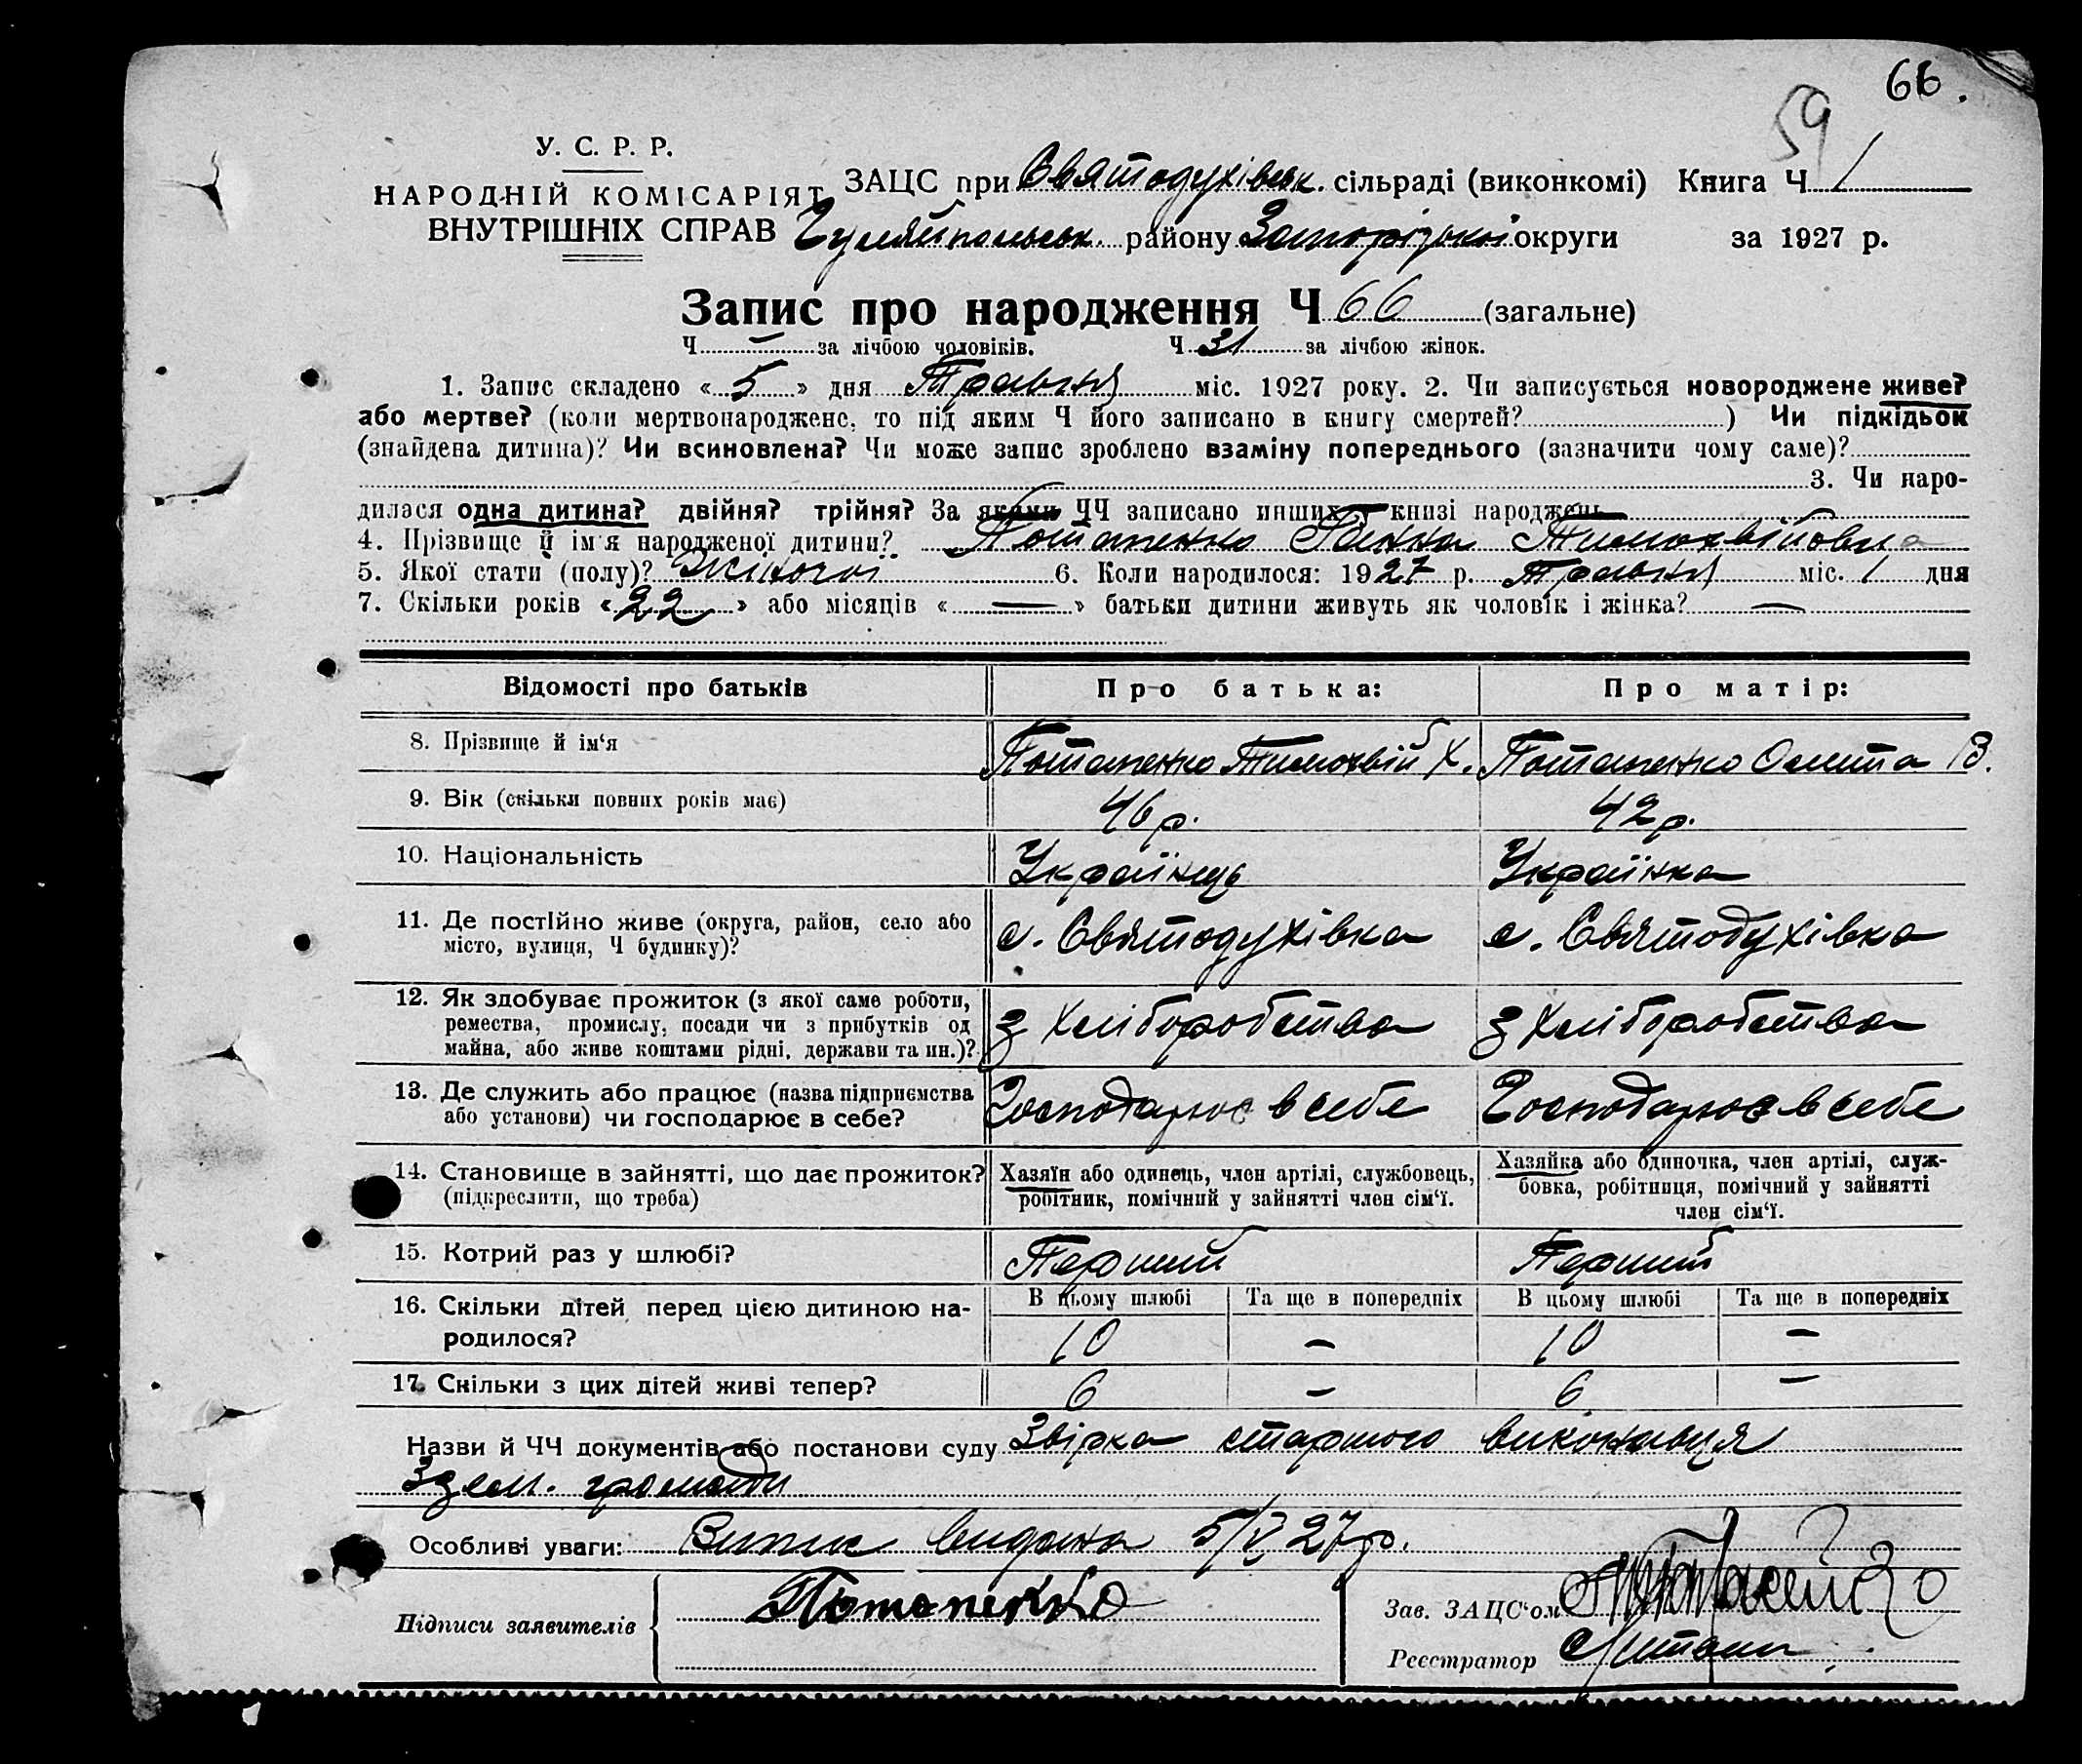 66.
59
У. С. Р. Р.
НАРОДНІЙ КОМІСАРІЯТ
ВНУТРІШНІХ СПРАВ
ЗАЦС при Святодухівськ. сільраді (виконкомі) Книга Ч 1
Гуляйпольськ. району Запорізької округи за 1927 р.
Запис про народження Ч 66 (загальне)
Ч — за лічбою чоловіків. Ч 31 за лічбою жінок.
1. Запис складено « 5 » дня Травня міс. 1927 року. 2. Чи записується новороджене живе?
або мертве? (коли мертвонароджене, то під яким Ч його записано в книгу смертей? ) Чи підкідьок
(знайдена дитина)? Чи всиновлена? Чи може запис зроблено взаміну попереднього (зазначити чому саме)?
3. Чи наро-
дилася одна дитина? двійня? трійня? За якими ЧЧ записано инших в книзі народжень
4. Прізвище й ім'я народженої дитини? Потапенко Ганна Тимохвійовна
5. Якої стати (полу)? Жіночої 6. Коли народилося: 1927 р. Травня міс. 1 дня
7. Скільки років « 22 » або місяців « — » батьки дитини живуть як чоловік і жінка? —
Відомості про батьків Про батька: Про матір:
8. Прізвище й ім'я Потапенко Тимохвій Х. Потапенко Олита В.
9. Вік (скільки повних років має) 46 р. 42 р.
10. Національність Українець Українка
11. Де постійно живе (округа, район, село або
місто, вулиця, Ч будинку)? с. Святодухівка с. Святодухівка
12. Як здобуває прожиток (з якої саме роботи,
ремества, промислу, посади чи з прибутків од
майна, або живе коштами рідні, держави та ин.)? З хліборобства З хліборобства
13. Де служить або працює (назва підприємства
або установи) чи господарює в себе? Господарює в себе Господарює в себе
14. Становище в зайнятті, що дає прожиток?
(підкреслити, що треба)
Хазяїн або одинець, член артілі, службовець,
робітник, помічний у зайнятті член сім'ї.
Хазяйка або одиночка, член артілі, служ-
бовка, робітниця, помічний у зайнятті
член сім'ї.
15. Котрий раз у шлюбі? Перший Перший
16. Скільки дітей перед цією дитиною на-
родилося?
В цьому шлюбі Та ще в попередніх В цьому шлюбі Та ще в попередніх
10 — 10 —
17. Скільки з цих дітей живі тепер? 6 — 6 —
Назви й ЧЧ документів або постанови суду Звірка старшого виконавця
З зем. громади
Особливі уваги: Випис видана 5/V 27 р.
Підписи заявителів Потапенко
Зав. ЗАЦС'ом
Реєстратор